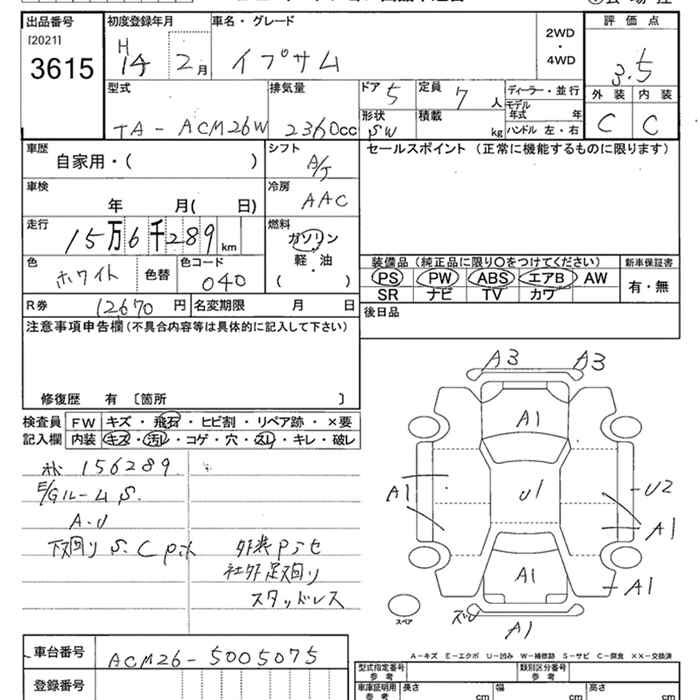 出品番号 初度登録年月 車名・グレード 2WD・4WD 評価点
[2021] H
3615 14 2月 イプサム 3.5
型式 排気量 ドア 5 定員 7人 ディーラー・並行 外装 内装
TA-ACM26W 2360cc 形状 SW 積載 kg モデル年式 年 ハンドル 左・右 C C
車歴 シフト セールスポイント (正常に機能するものに限ります)
自家用・( ) A/T
車検 冷房
年 月( 日) AAC
走行 燃料
15万6千289km ガソリン・軽・油
色 色コード ( )
ホワイト 色替 040
装備品(純正品に限り○をつけてください) 新車保証書
PS PW ABS エアB AW 有・無
SR ナビ TV カワ
R券 12670円 名変期限 月 日 後日品
注意事項申告欄(不具合内容等は具体的に記入して下さい)
修復歴 有 〔箇所 〕
検査員 FW キズ・飛石・ヒビ割・リペア跡・×要
記入欄 内装 キズ・汚レ・コゲ・穴・スレ・キレ・破レ
156289
E/Gルーム S.
A・U
下廻り S. C
社外足廻り
スタッドレス
A3 A3
A1
A1 U1 U2
A1
A1 A1
A1
スペア
A-キズ E-エクボ U-凹み W-補修跡 S-サビ C-腐食 XX-交換済
車台番号 ACM26-5005075
登録番号
型式指定番号 参考 類別区分番号 参考
車庫証明用 参考 長さ cm 幅 cm 高さ cm